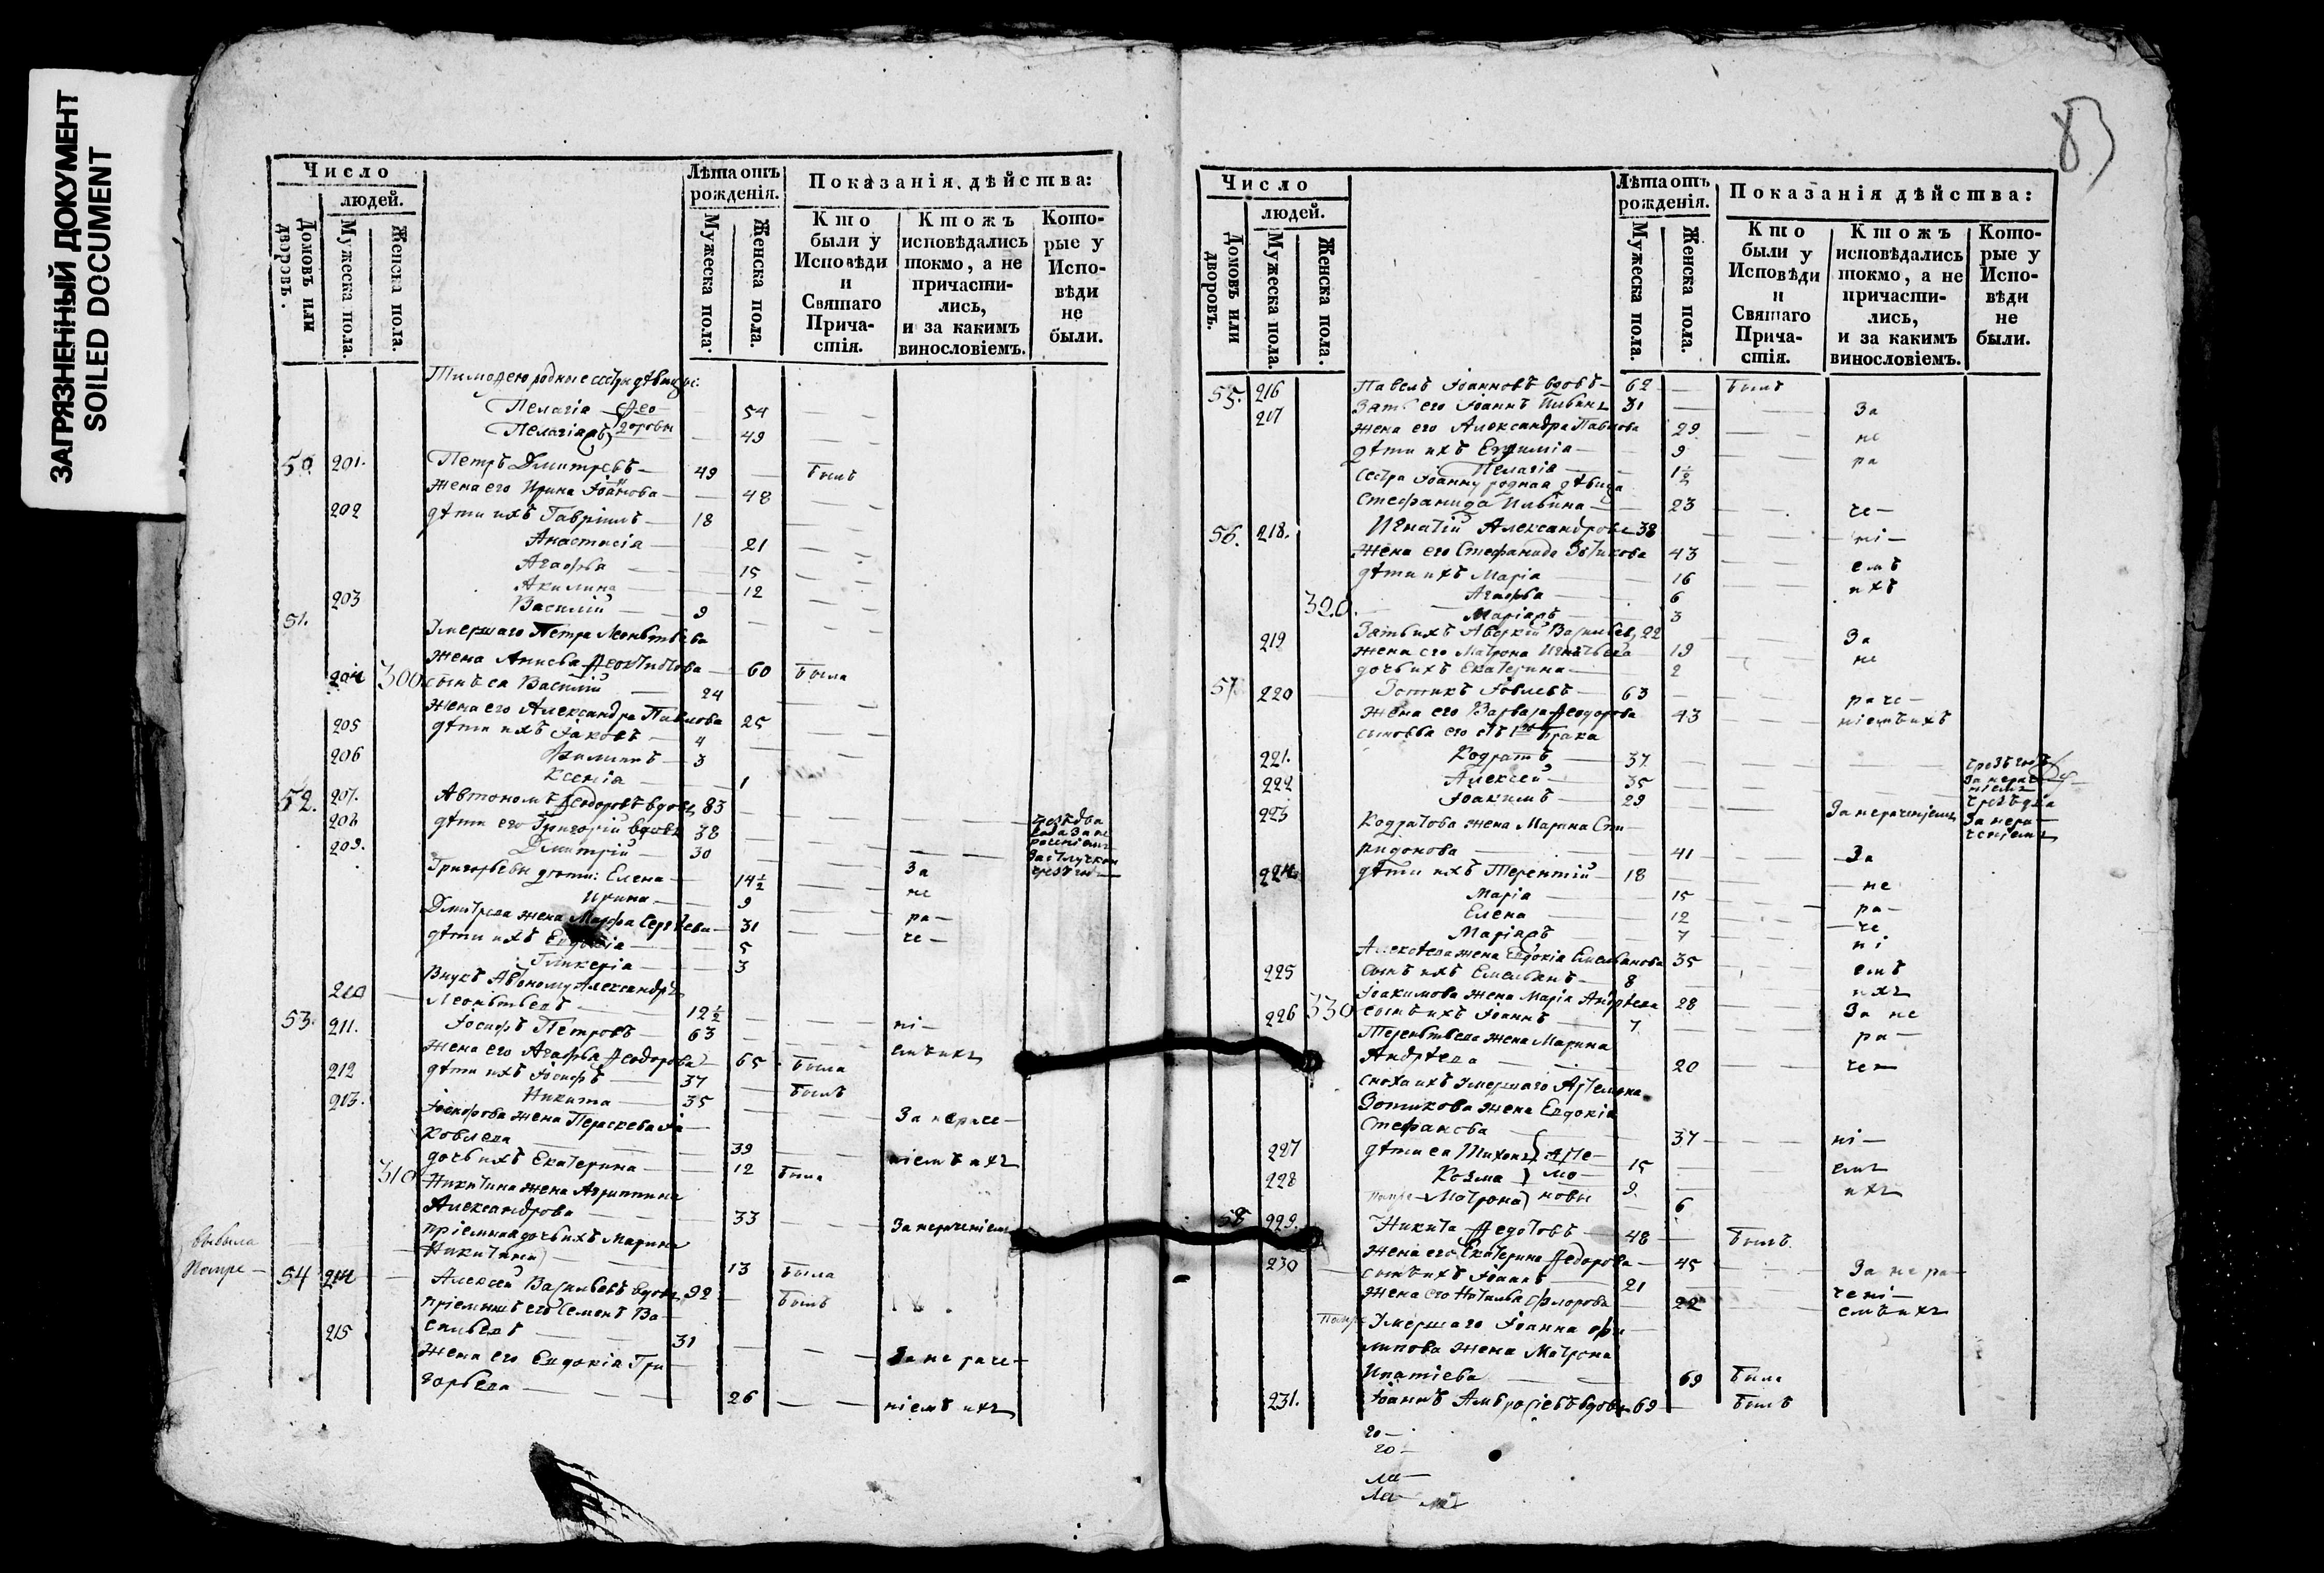 ЗАГРЯЗНЕННЫЙ ДОКУМЕНТ
SOILED DOCUMENT
Число
людей.
Домовъ или дворовъ.
Мужеска пола.
Женска пола.
Лѣта отъ рожденія.
Мужеска пола.
Женска пола.
Показанія дѣйства:
Кто были у Исповѣди и Святаго Прича-стія.
Ктожъ исповѣдались токмо, а не причасти-лись, и за какимъ винословіемъ.
Кото-рые у Испо-вѣди не были.
родные сестры дѣвицы:
Пелагія Ѳео- 54
Пелагія доровы 49
50. 201. Петръ Дмитревъ 49 былъ
жена его Ирина Іоанова 48
202 дѣти ихъ Гавріилъ 18
Анастасія 21
Агафья 15
Акилина 12
203 Василій 9
51. Умершаго Петра Леонтьева
жена Анисья 60 была
204 300 сынъ ея Василій 24
жена его Александра Павлова 25
205 дѣти ихъ Іаковъ 4
206 Филиппъ 3
Ксенія 1
52. 207. Автономъ Ѳеодоровъ вдовъ 83
208 дѣти его Григорій вдовъ 38
209. Дмитрій 30
Григорьевы дѣти: Елена 14½ За
Ирина 9 не
Дмитрева жена Марфа Сергѣева 31 ра-
дѣти ихъ Евдокія 5 че-
Гликерія 3
Внукъ Автоному Александръ
210 Леонтьевъ 12½
53. 211. Іосифъ Петровъ 63 ні-
жена его Агафья Ѳеодорова 65 была емъ ихъ
212 дѣти ихъ Іосифъ 37 былъ
213. Никита 35
Іосифова жена Параскева Іа- За нераче-
ковлева 39
дочь ихъ Екатерина 12 была ніемъ ихъ
310 Никитина жена Агриппина
Александрова 33 За нераченіемъ
пріемная дочь ихъ Марина
Никитина 13 была
54 214 Алексей Васильевъ вдовъ 92 былъ
пріемышъ его Семенъ Ва-
215 сильевъ 31
жена его Евдокія Гри- За нераче-
горьева 26 ніемъ ихъ
Число
людей.
Домовъ или дворовъ.
Мужеска пола.
Женска пола.
Лѣта отъ рожденія.
Мужеска пола.
Женска пола.
Показанія дѣйства:
Кто были у Исповѣди и Святаго Прича-стія.
Ктожъ исповѣдались токмо, а не причасти-лись, и за какимъ винословіемъ.
Кото-рые у Испо-вѣди не были.
55. 216 Павелъ Іоанновъ вдовъ 62 былъ
217 Зять его Іоаннъ Ильинъ 31 За
жена его Александра Павлова 29 не
дѣти ихъ Евфимія 9 ра
Пелагія 1½
сестра Іоанну родная дѣвица
Стефанида Ильина 23 че-
56. 218. Игнатій Александровъ 38 ні-
жена его Стефанида Зотикова 43 емъ
дѣти ихъ Марія 16 ихъ
Агафья 6
320. Марія 3
219 Зять ихъ Аверкій Васильевъ 22 За
жена его Матрона Игнатьева 19 не
дочь ихъ Екатерина 2
57 220 Зотикъ Іовлевъ 63 раче-
жена его Варвара Ѳеодорова 43 ніемъ ихъ
сыновья его отъ 1го брака
221. Кодратъ 37
222 Алексей 35
223 Іоакимъ 29
Кодратова жена Марина Спи- За нераченіемъ
ридонова 41 За
224. дѣти ихъ Терентій 18 не
Марія 15 ра-
Елена 12 че
Марія 7 ні
Алексѣева жена Евдокія Емельянова 35 емъ
225 сынъ ихъ Емельянъ 8 ихъ
Іоакимова жена Марія Андрѣева 28 За не
226 330 сынъ ихъ Іоаннъ 7 ра-
Терентьева жена Марина
Андрѣева 20 че-
сноха ихъ умершаго Артемона
Зотикова жена Евдокія
Стефанова 37 ні-
227 дѣти ея Тихонъ Арте- 15 емъ
228 Козма мо- 9 ихъ
Матрона новы 6
58 229. Никита Ѳедотовъ 48 былъ
жена его Екатерина Ѳедорова 45 За нера-
230 сынъ ихъ Іоаннъ 21 чені-
жена его Наталья Флорова 22 емъ ихъ
Умершаго Іоанна Фи-
липова жена Матрона
Ипатіева 69 была
231. Іоаннъ Амвросіевъ вдовъ 69 былъ